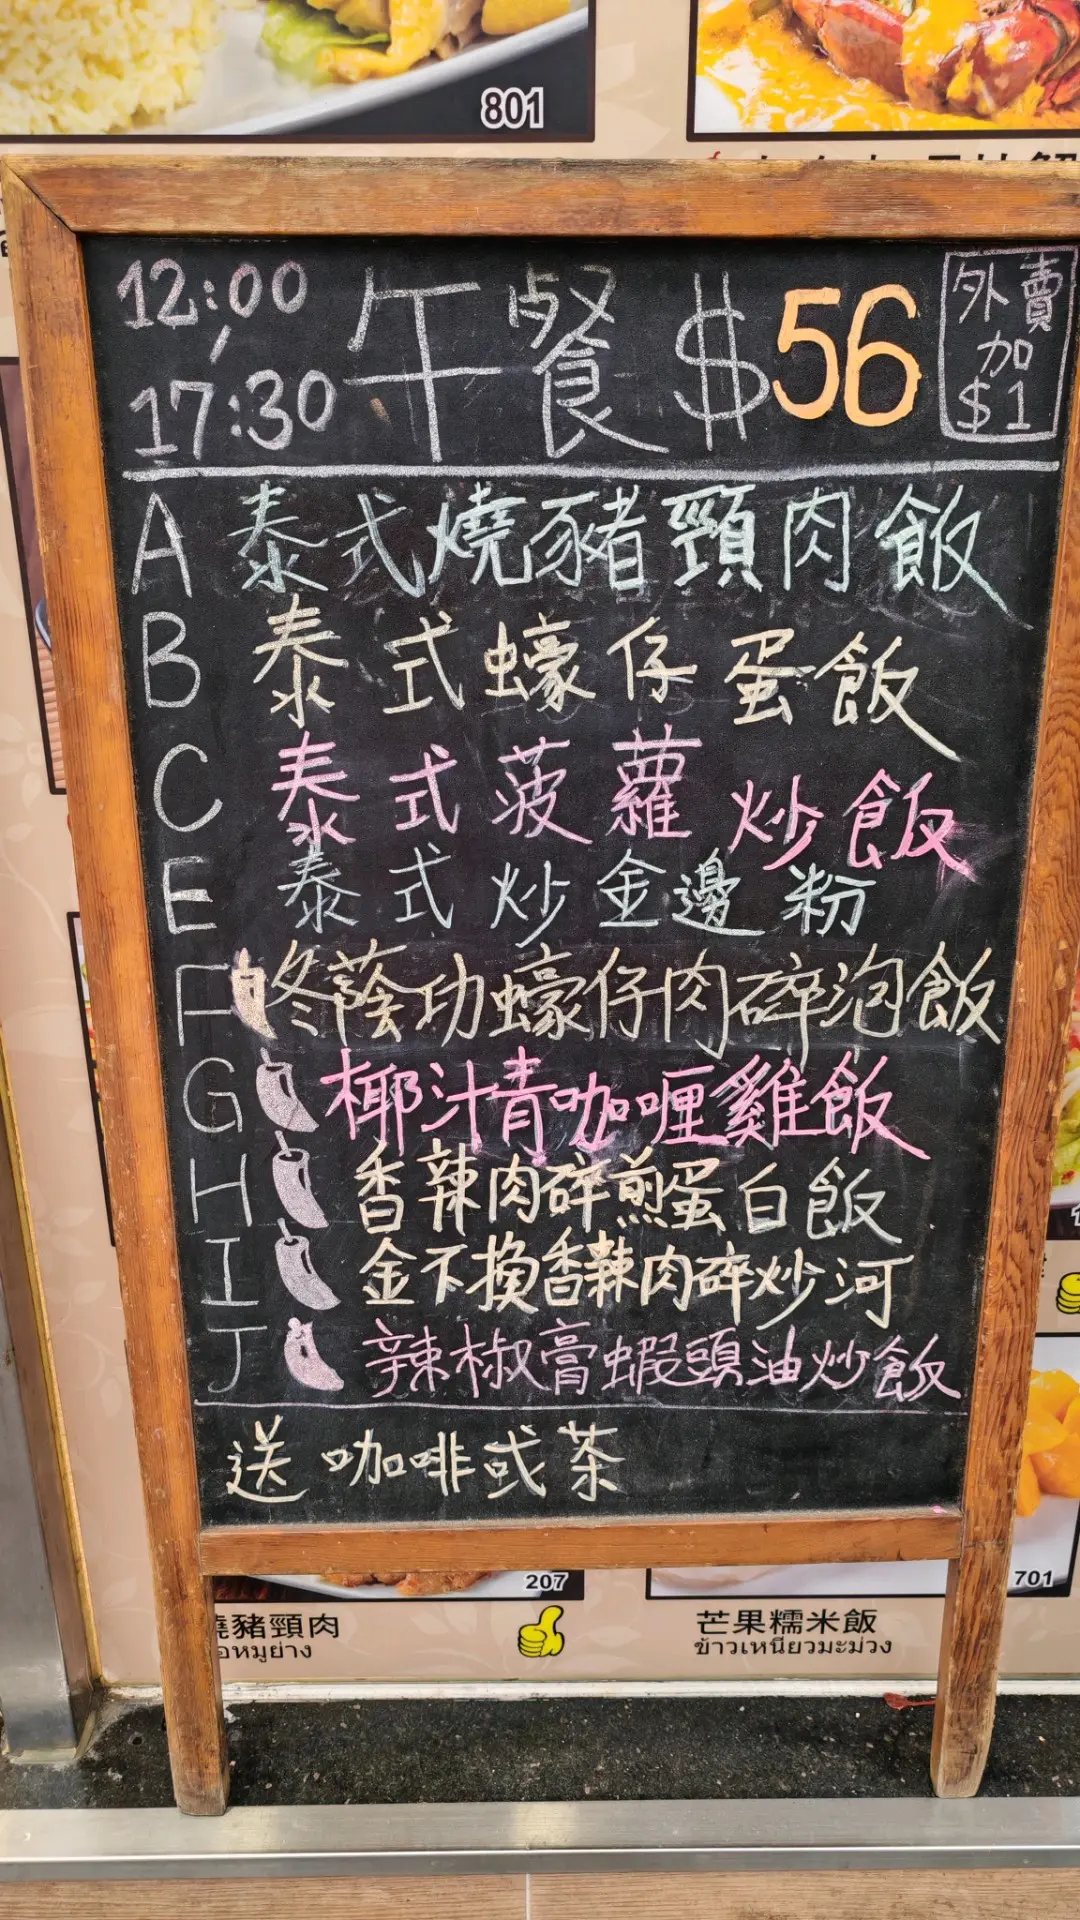 801
12:00
17:30
午餐 $56
外賣
加
$1
A 泰式燒豬頸肉飯
B 泰式蠔仔蛋飯
C 泰式菠蘿炒飯
E 泰式炒金邊粉
F 冬蔭功蠔仔肉碎泡飯
G 椰汁青咖喱雞飯
H 香辣肉碎煎蛋白飯
I 金不換香辣肉碎炒河
J 辣椒膏蝦頭油炒飯
送咖啡或茶
207
701
燒豬頸肉
芒果糯米飯
อหมูย่าง
ข้าวเหนียวมะม่วง